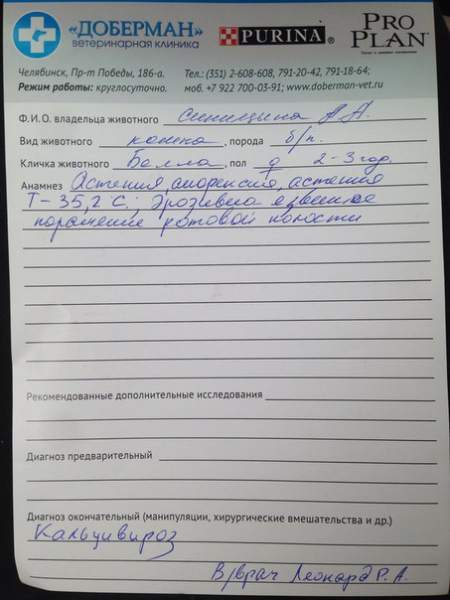 «ДОБЕРМАН»
ветеринарная клиника
PURINA®
PRO PLAN®
Челябинск, Пр-т Победы, 186-а.
Режим работы: круглосуточно.
Тел.: (351) 2-608-608, 791-20-42, 791-18-64;
моб. +7 922 700-03-91; www.doberman-vet.ru
Ф.И.О. владельца животного Синицина А.А.
Вид животного кошка, порода б/п.
Кличка животного Белла, пол 2-3 год.
Анамнез Астения, анорексия, астения
Т-35,2 С.; Эрозивно язвенное
поражение ротовой полости
Рекомендованные дополнительные исследования
Диагноз предварительный
Диагноз окончательный (манипуляции, хирургические вмешательства и др.)
Кальцивироз
В/врач Леонард Р.А.